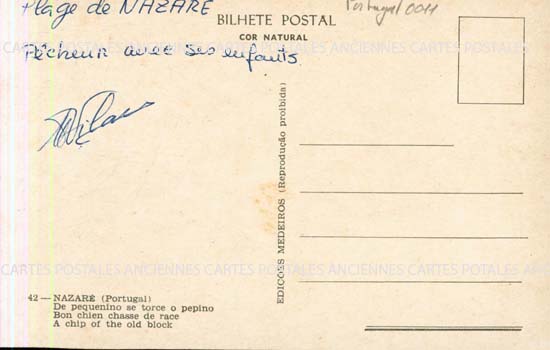 Plage de NAZARE
Pêcheur avec ses enfants.
BILHETE POSTAL
COR NATURAL
Portugal 0011
CARTES POSTALES ANCIENNES CARTES POSTALES ANCIENNES CARTES POTALES
EDICÕES MEDEIROS (Reprodução proibida)
CARTES POSTALES ANCIENNES CARTES POSTALES ANCIENNES CARTES POTALES
42 — NAZARÉ (Portugal)
De pequenino se torce o pepino
Bon chien chasse de race
A chip of the old block